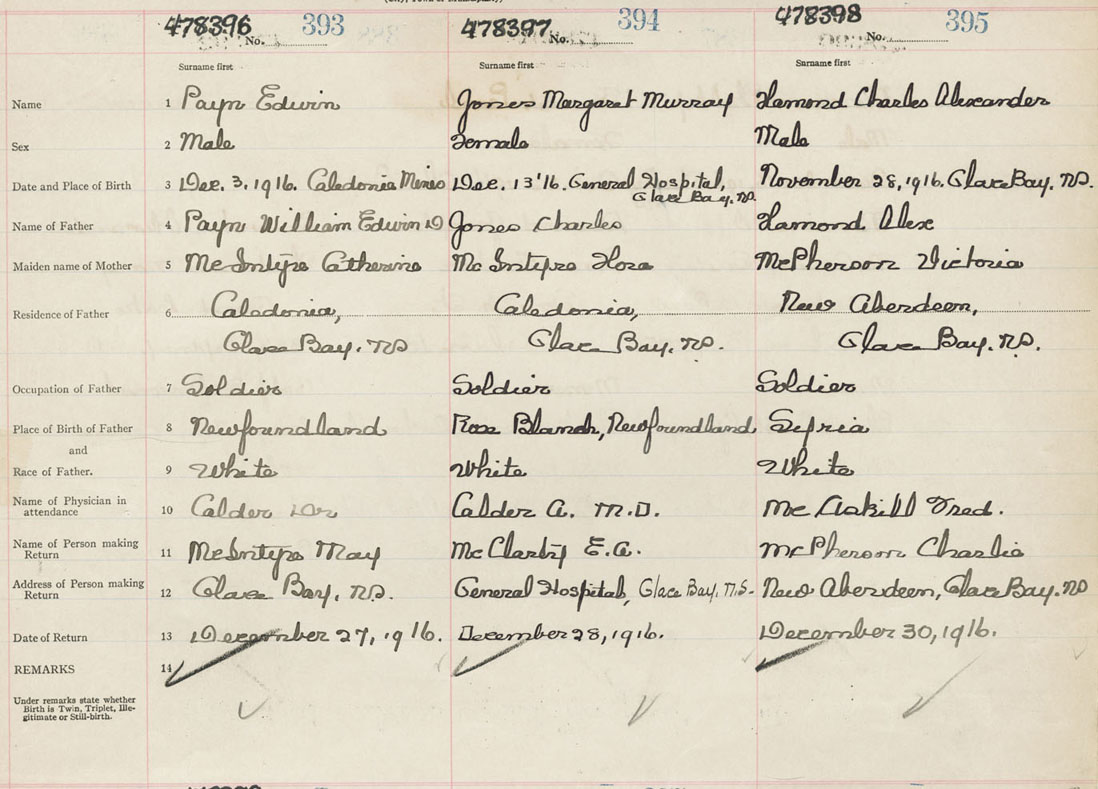 478396 No. 393 478397 No. 394 478398 No. 395
Surname first Surname first Surname first
Name 1 Payn Edwin Jones Margaret Murray Hamond Charles Alexander
Sex 2 Male Female Male
Date and Place of Birth 3 Dec. 3, 1916. Caledonia Mines Dec. 13 '16. General Hospital, Glace Bay. N.S. November 28, 1916. Glace Bay. N.S.
Name of Father 4 Payn William Edwin Jones Charles Hamond Alex
Maiden name of Mother 5 McIntyre Catherine McIntyre Flora McPherson Victoria
Residence of Father 6 Caledonia, Caledonia, New Aberdeen,
Glace Bay. N.S Glace Bay. N.S. Glace Bay. N.S.
Occupation of Father 7 Soldier Soldier Soldier
Place of Birth of Father 8 Newfoundland Rose Blanch, Newfoundland Syria
and
Race of Father. 9 White White White
Name of Physician in
attendance 10 Calder Dr Calder A. M.D. McAskill Fred.
Name of Person making
Return 11 McIntyre May McClarty E.A. McPherson Charlie
Address of Person making
Return 12 Glace Bay, N.S. General Hospital, Glace Bay. N.S. New Aberdeen, Glace Bay. N.S
Date of Return 13 December 27, 1916. December 28, 1916. December 30, 1916.
REMARKS 14
Under remarks state whether
Birth is Twin, Triplet, Ille-
gitimate or Still-birth.